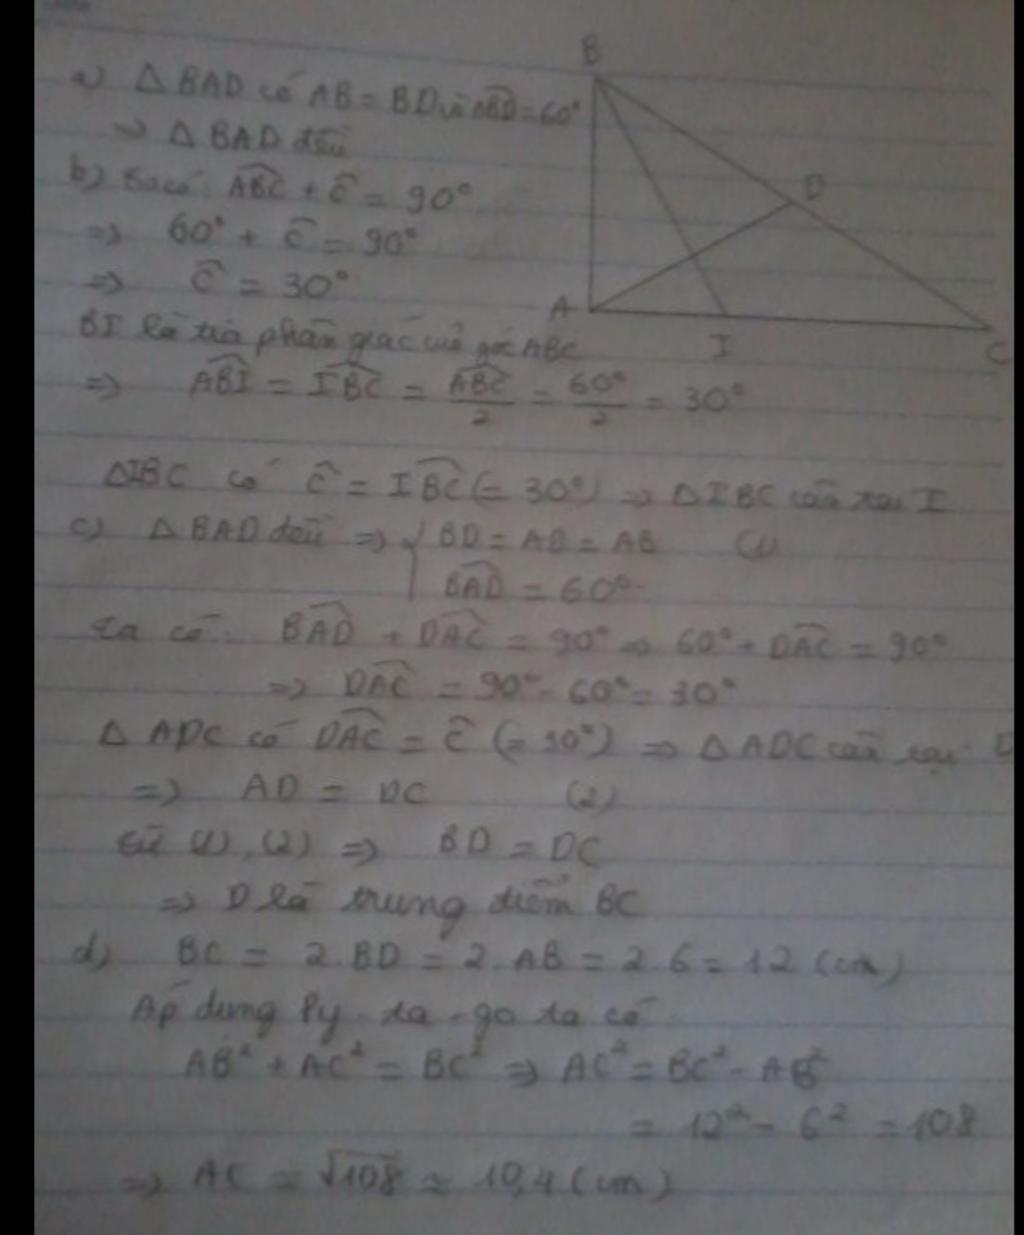 a) △ BAD có AB = BD và ABD̂ = 60°
=> △ BAD đều
b) Ta có: ABĈ + Ĉ = 90°
=> 60° + Ĉ = 90°
=> Ĉ = 30°
BI là tia phân giác của góc ABC
=> ABÎ = IBĈ = ABĈ/2 = 60°/2 = 30°
△IBC có Ĉ = IBĈ (= 30°) => △IBC cân tại I
c) △ BAD đều => { BD = AD = AB (1)
BAD̂ = 60°
Ta có: BAD̂ + DAĈ = 90° => 60° + DAĈ = 90°
=> DAĈ = 90° - 60° = 30°
△ ADC có DAĈ = Ĉ (= 30°) => △ ADC cân tại D
=> AD = DC (2)
Từ (1), (2) => BD = DC
=> D là trung điểm BC
d) BC = 2 BD = 2. AB = 2. 6 = 12 (cm)
Áp dụng Py-ta-go ta có
AB² + AC² = BC² => AC² = BC² - AB²
= 12² - 6² = 108
=> AC = √108 ≈ 10,4 (cm)
B
D
A
I
C